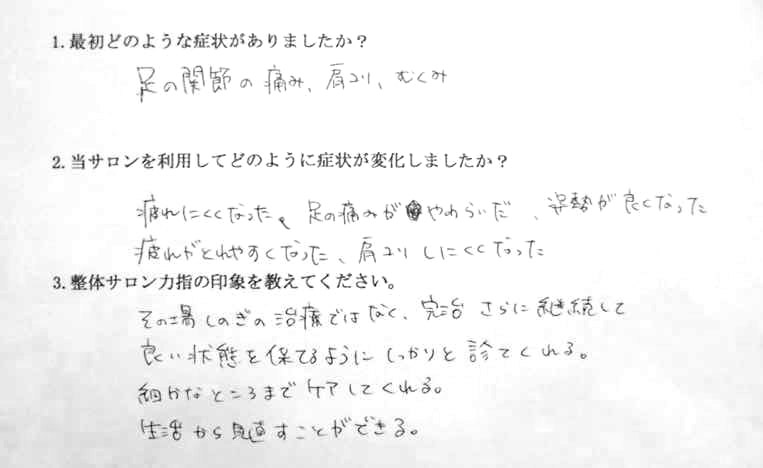 1. 最初どのような症状がありましたか？
足の関節の痛み、肩コリ、むくみ
2. 当サロンを利用してどのように症状が変化しましたか？
疲れにくくなった、足の痛みがやわらいだ、姿勢が良くなった
疲れがとれやすくなった、肩コリしにくくなった
3. 整体サロン力指の印象を教えてください。
その場しのぎの治療ではなく、完治さらに継続して
良い状態を保てるようにしっかりと診てくれる。
細かなところまでケアしてくれる。
生活から見直すことができる。